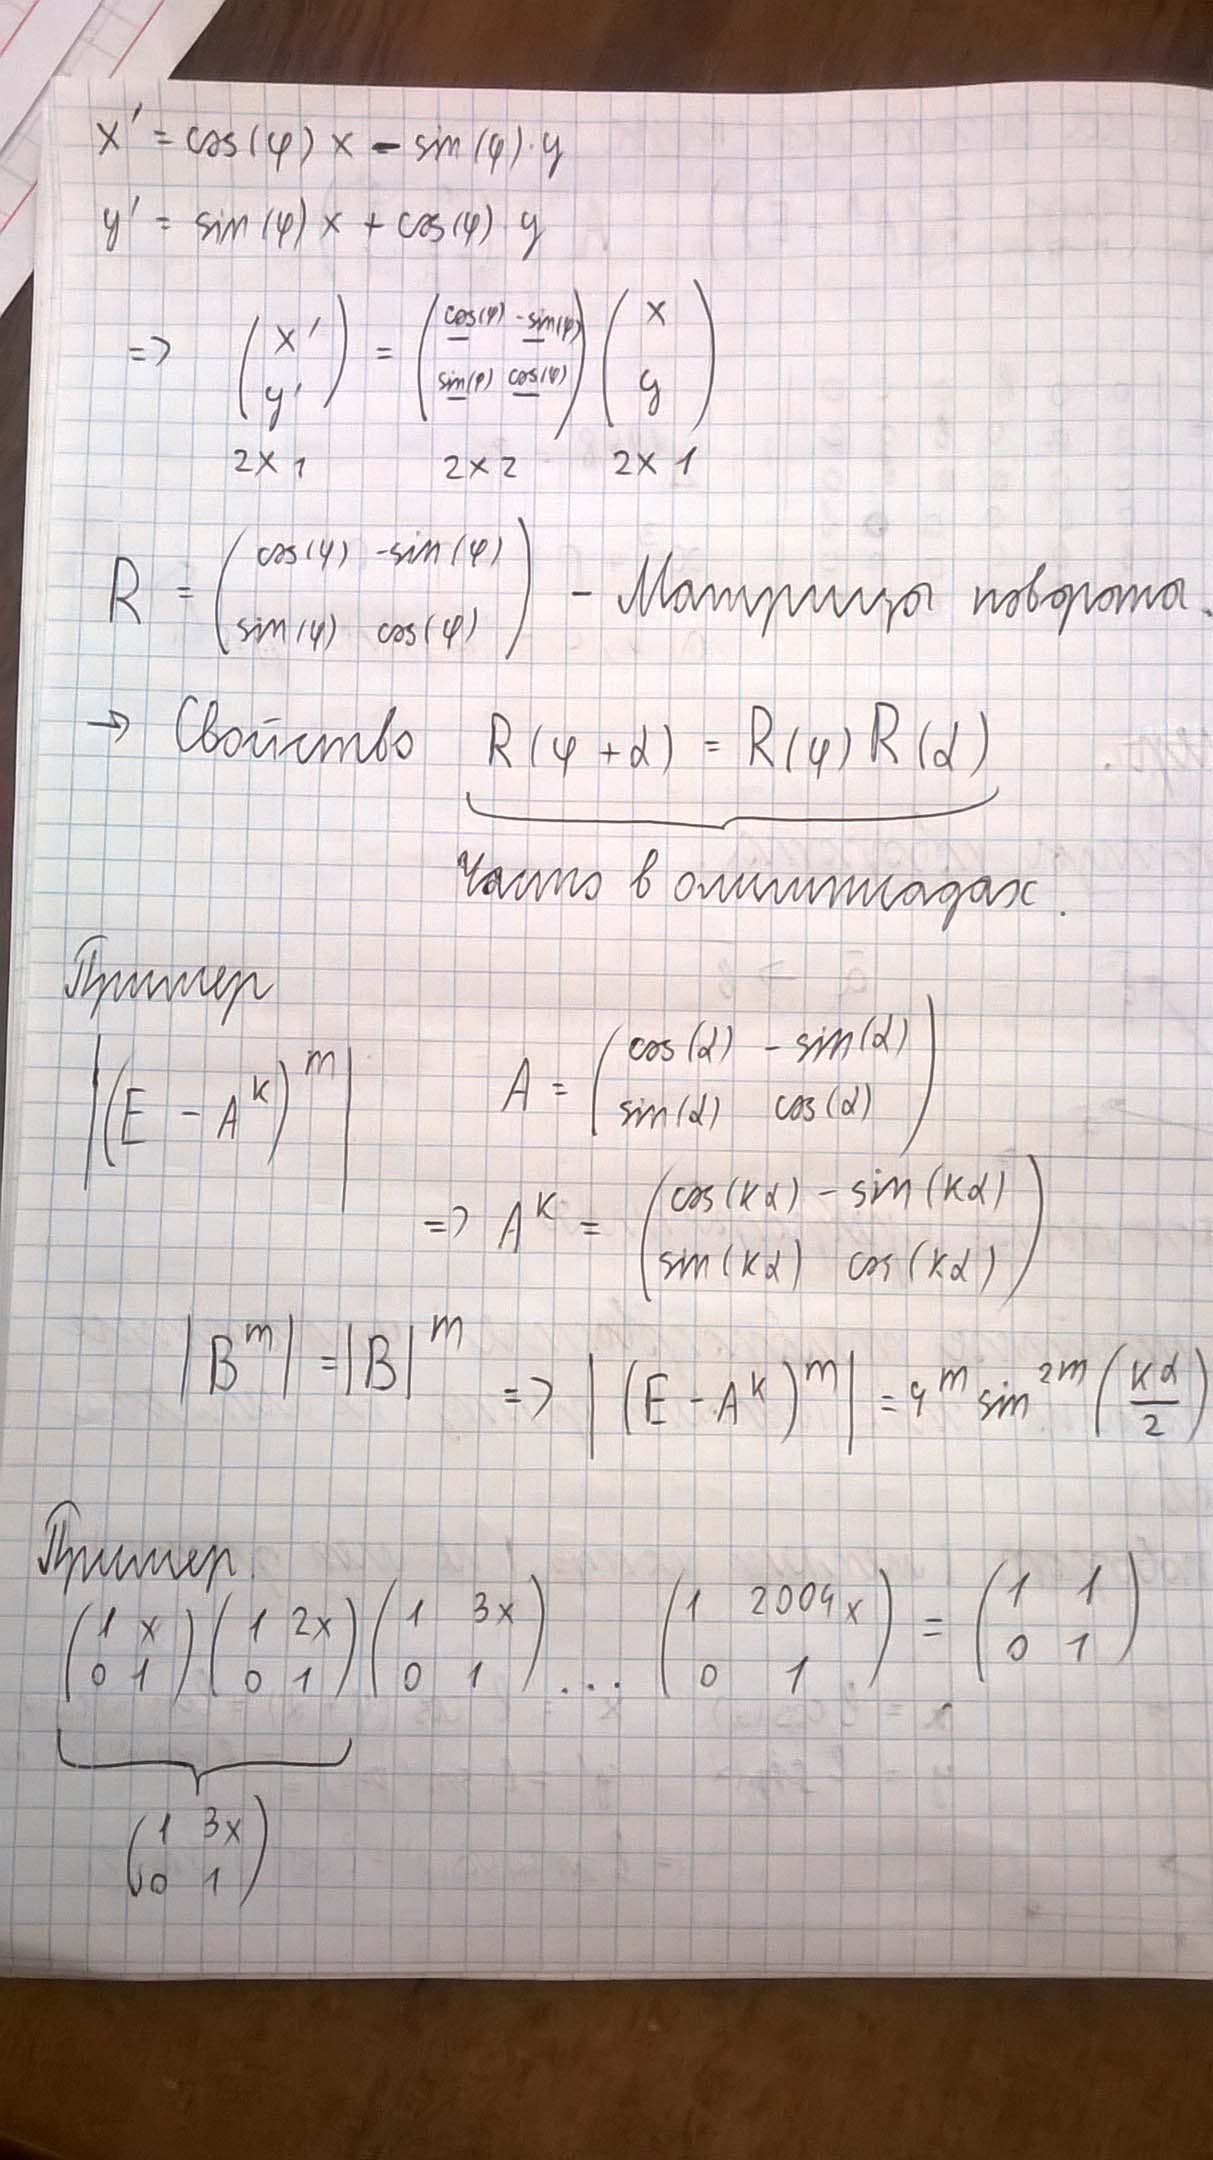 x' = cos(φ) x - sin(φ)·y
y' = sin(φ) x + cos(φ) y
=> (x' y') = (cos(φ) -sin(φ) sin(φ) cos(φ)) (x y)
2x1 2x2 2x1
R = (cos(φ) -sin(φ) sin(φ) cos(φ)) - Матрицы поворота.
→ Свойство R(φ+α) = R(φ) R(α)
Часто в олимпиадах.
Пример
|(E - A^k)^m| A = (cos(α) -sin(α) sin(α) cos(α))
=> A^k = (cos(kα) -sin(kα) sin(kα) cos(kα))
|B^m| = |B|^m => |(E - A^k)^m| = 4^m sin^2m (kα/2)
Пример
(1 x 0 1) (1 2x 0 1) (1 3x 0 1) ... (1 2004x 0 1) = (1 1 0 1)
(1 3x 0 1)